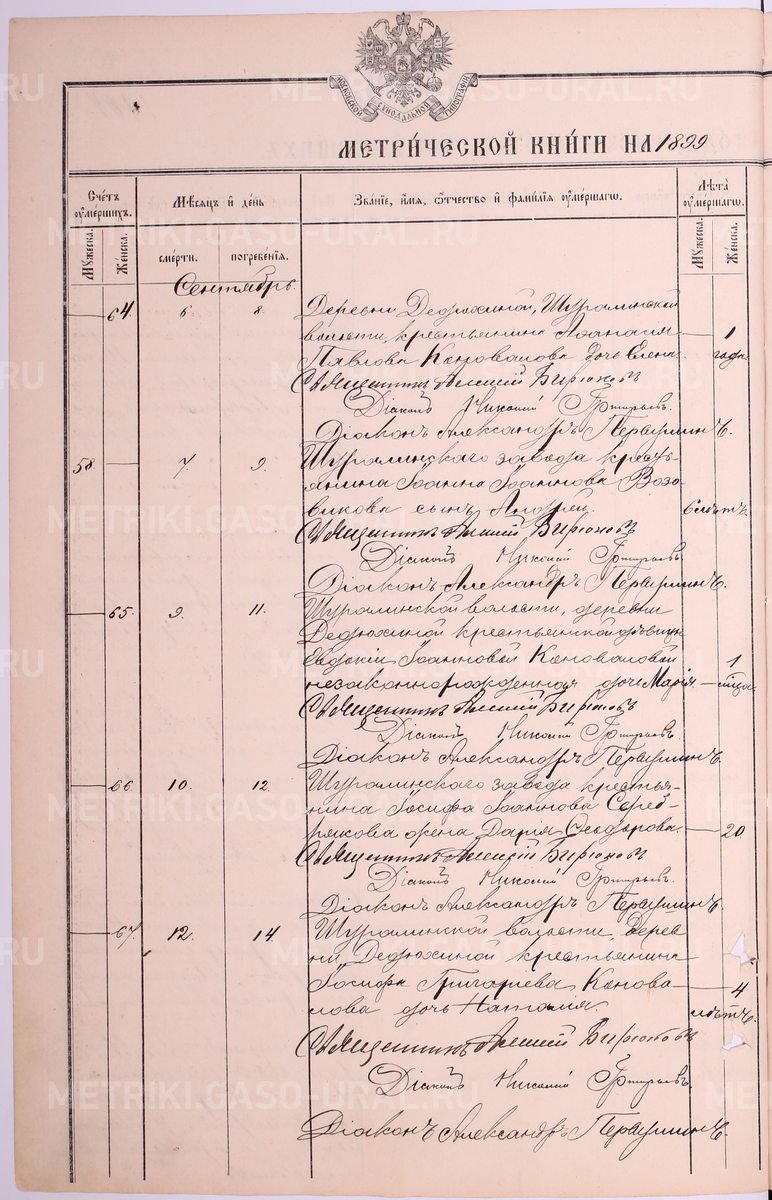 МОСКОВСКОЙ СѴНОДАЛЬНОЙ ТИПОГРАФІИ
МЕТРИ́ЧЕСКОЙ КНИ́ГИ НА 1899
Сче́тъ ᲂумершихъ.
Мѣсяцъ и день
Зва́ніе, и́мя, ѻтчество и фамилія ᲂуме́ршагѡ.
Лѣта ᲂуме́ршагѡ.
Мꙋжеска.
Же́нска.
сме́рти.
погребе́нія.
Мꙋжеска.
Же́нска.
Сентябрь
64. 6. 8. Деревни Дедюхиной, Шуралинской
волости, крестьянина Афанасія 1
Павлова Коновалова дочь Елена. года.
Священникъ Алексій Бирюковъ
Діаконъ Никоній Григорьевъ.
Діаконъ Александръ Первушинъ.
58. 7. 9. Шуралинскаго завода кресть-
янина Іоанна Іоаннова Возо-
викова сынъ Андрей. 6 лѣтъ.
Священникъ Алексій Бирюковъ
Діаконъ Никоній Григорьевъ
Діаконъ Александръ Первушинъ.
65. 9. 11. Шуралинской волости, деревни
Дедюхиной крестьянской дѣвицы
Евдокіи Іоанновой Коноваловой 1
незаконнорожденная дочь Марія. мѣсяц.
Священникъ Алексій Бирюковъ
Діаконъ Никоній Григорьевъ.
Діаконъ Александръ Первушинъ.
66. 10. 12. Шуралинскаго завода крестья-
нина Іосифа Іоаннова Сереб-
рякова жена Дарія Ѳеодорова. 20
Священникъ Алексій Бирюковъ
Діаконъ Никоній Григорьевъ.
Діаконъ Александръ Первушинъ.
67. 12. 14. Шуралинской волости, дерев-
ни Дедюхиной крестьянина
Іосифа Григорьева Конова- 4
лова дочь Наталія. лѣтъ.
Священникъ Алексій Бирюковъ
Діаконъ Никоній Григорьевъ.
Діаконъ Александръ Первушинъ.
METRIKI.GASO-URAL.RU